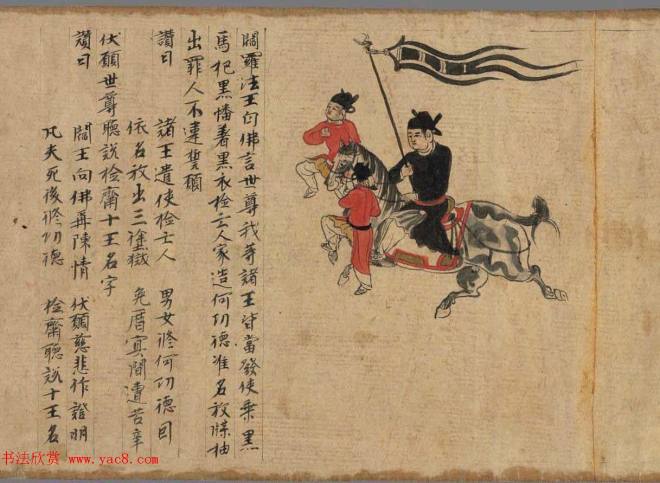 閻羅法王白佛言世尊我等諸王皆當發使乘黑
馬把黑幡著黑衣檢亡人家造何功德准名放牒抽
出罪人不違誓願
讚曰 諸王遣使檢亡人 男女修何功德因
依名放出三塗獄 免歷冥間遭苦辛
伏願世尊聽說檢齋十王名字
讚曰 閻王向佛再陳情 伏願慈悲作證明
凡夫死後修功德 檢齋聽說十王名
书法欣赏 www.yac8.com